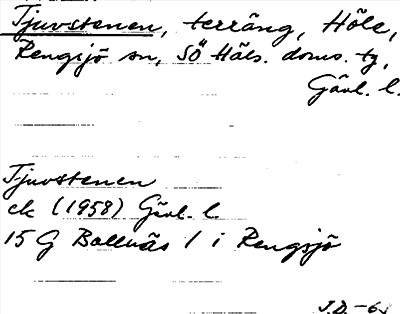 Tjuvstenen, terräng, Höle,
Rengsjö sn, SÖ Häls. doms. tg,
Gävl. l.
Tjuvstenen
ek (1958) Gävl. l.
15 G Bollnäs 1 i Rengsjö